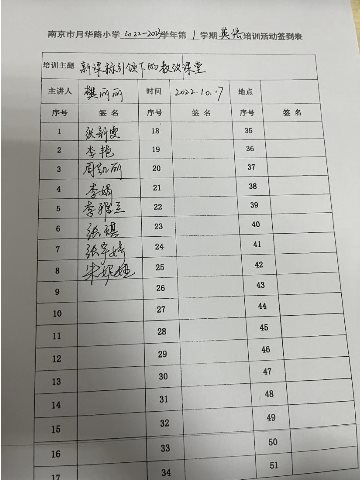 南京市月华路小学2022-2023学年第1学期英语培训活动签到表
培训主题 新课标引领下的教效课堂
主讲人 樊丽丽 时间 2022.10.7 地点
序号 签名 序号 签名 序号 签名
1 张新雯 18 35
2 李艳 19 36
3 周丽 20 37
4 李娟 21 38
5 李 22 39
6 张琪 23 40
7 张宇婷 24 41
8 朱婕 25 42
9 26 43
10 27 44
11 28 45
12 29 46
13 30 47
14 31 48
15 32 49
16 33 50
17 34 51